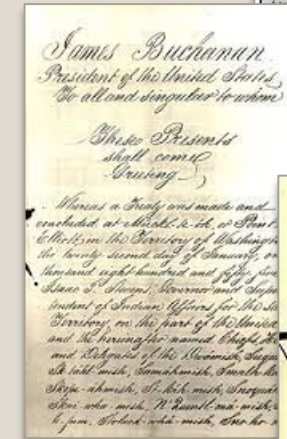 James Buchanan
President of the United States,
To all and singular to whom
These Presents
shall come,
Greeting:
Whereas a Treaty was made and
concluded at Muckl-te-óh, or Point
Elliott, in the Territory of Washington
the twenty second day of January, on
thousand eight hundred and fifty five
Isaac I. Stevens, Governor and Super
tendent of Indian Affairs for the sa
Territory, on the part of the United
and the hereinafter named Chiefs He
and Delegates of the Dwámish, Suqua
Sk-tahl-mish, Samáhmish, Smalh-ka
Skope-ahmish, St-káh-mish, Snoqual
Skai-wha-mish, N'Quentl-má-mish,